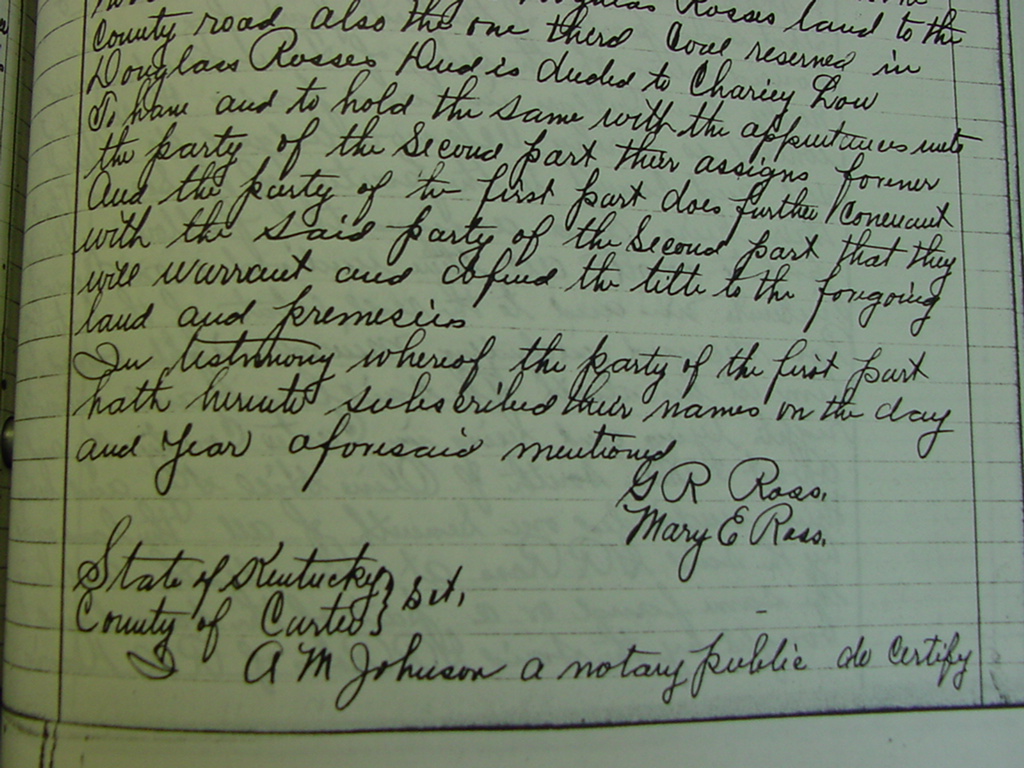 Rosses land to the
County road also the one third Coal reserved in
Douglass Rosses Deed is deeded to Charley Low
To have and to hold the same with the appurtenances unto
the party of the Second part their assigns forever
And the party of the first part does further Covenant
with the said party of the Second part that they
will warrant and defend the title to the forgoing
land and premesies
In testimony whereof the party of the first part
hath hereunto subscribed their names on the day
and Year aforesaid mentioned
G R Ross.
Mary E Ross.
State of Kentucky } Sct,
County of Carter
I A M Johnson a notary public do Certify